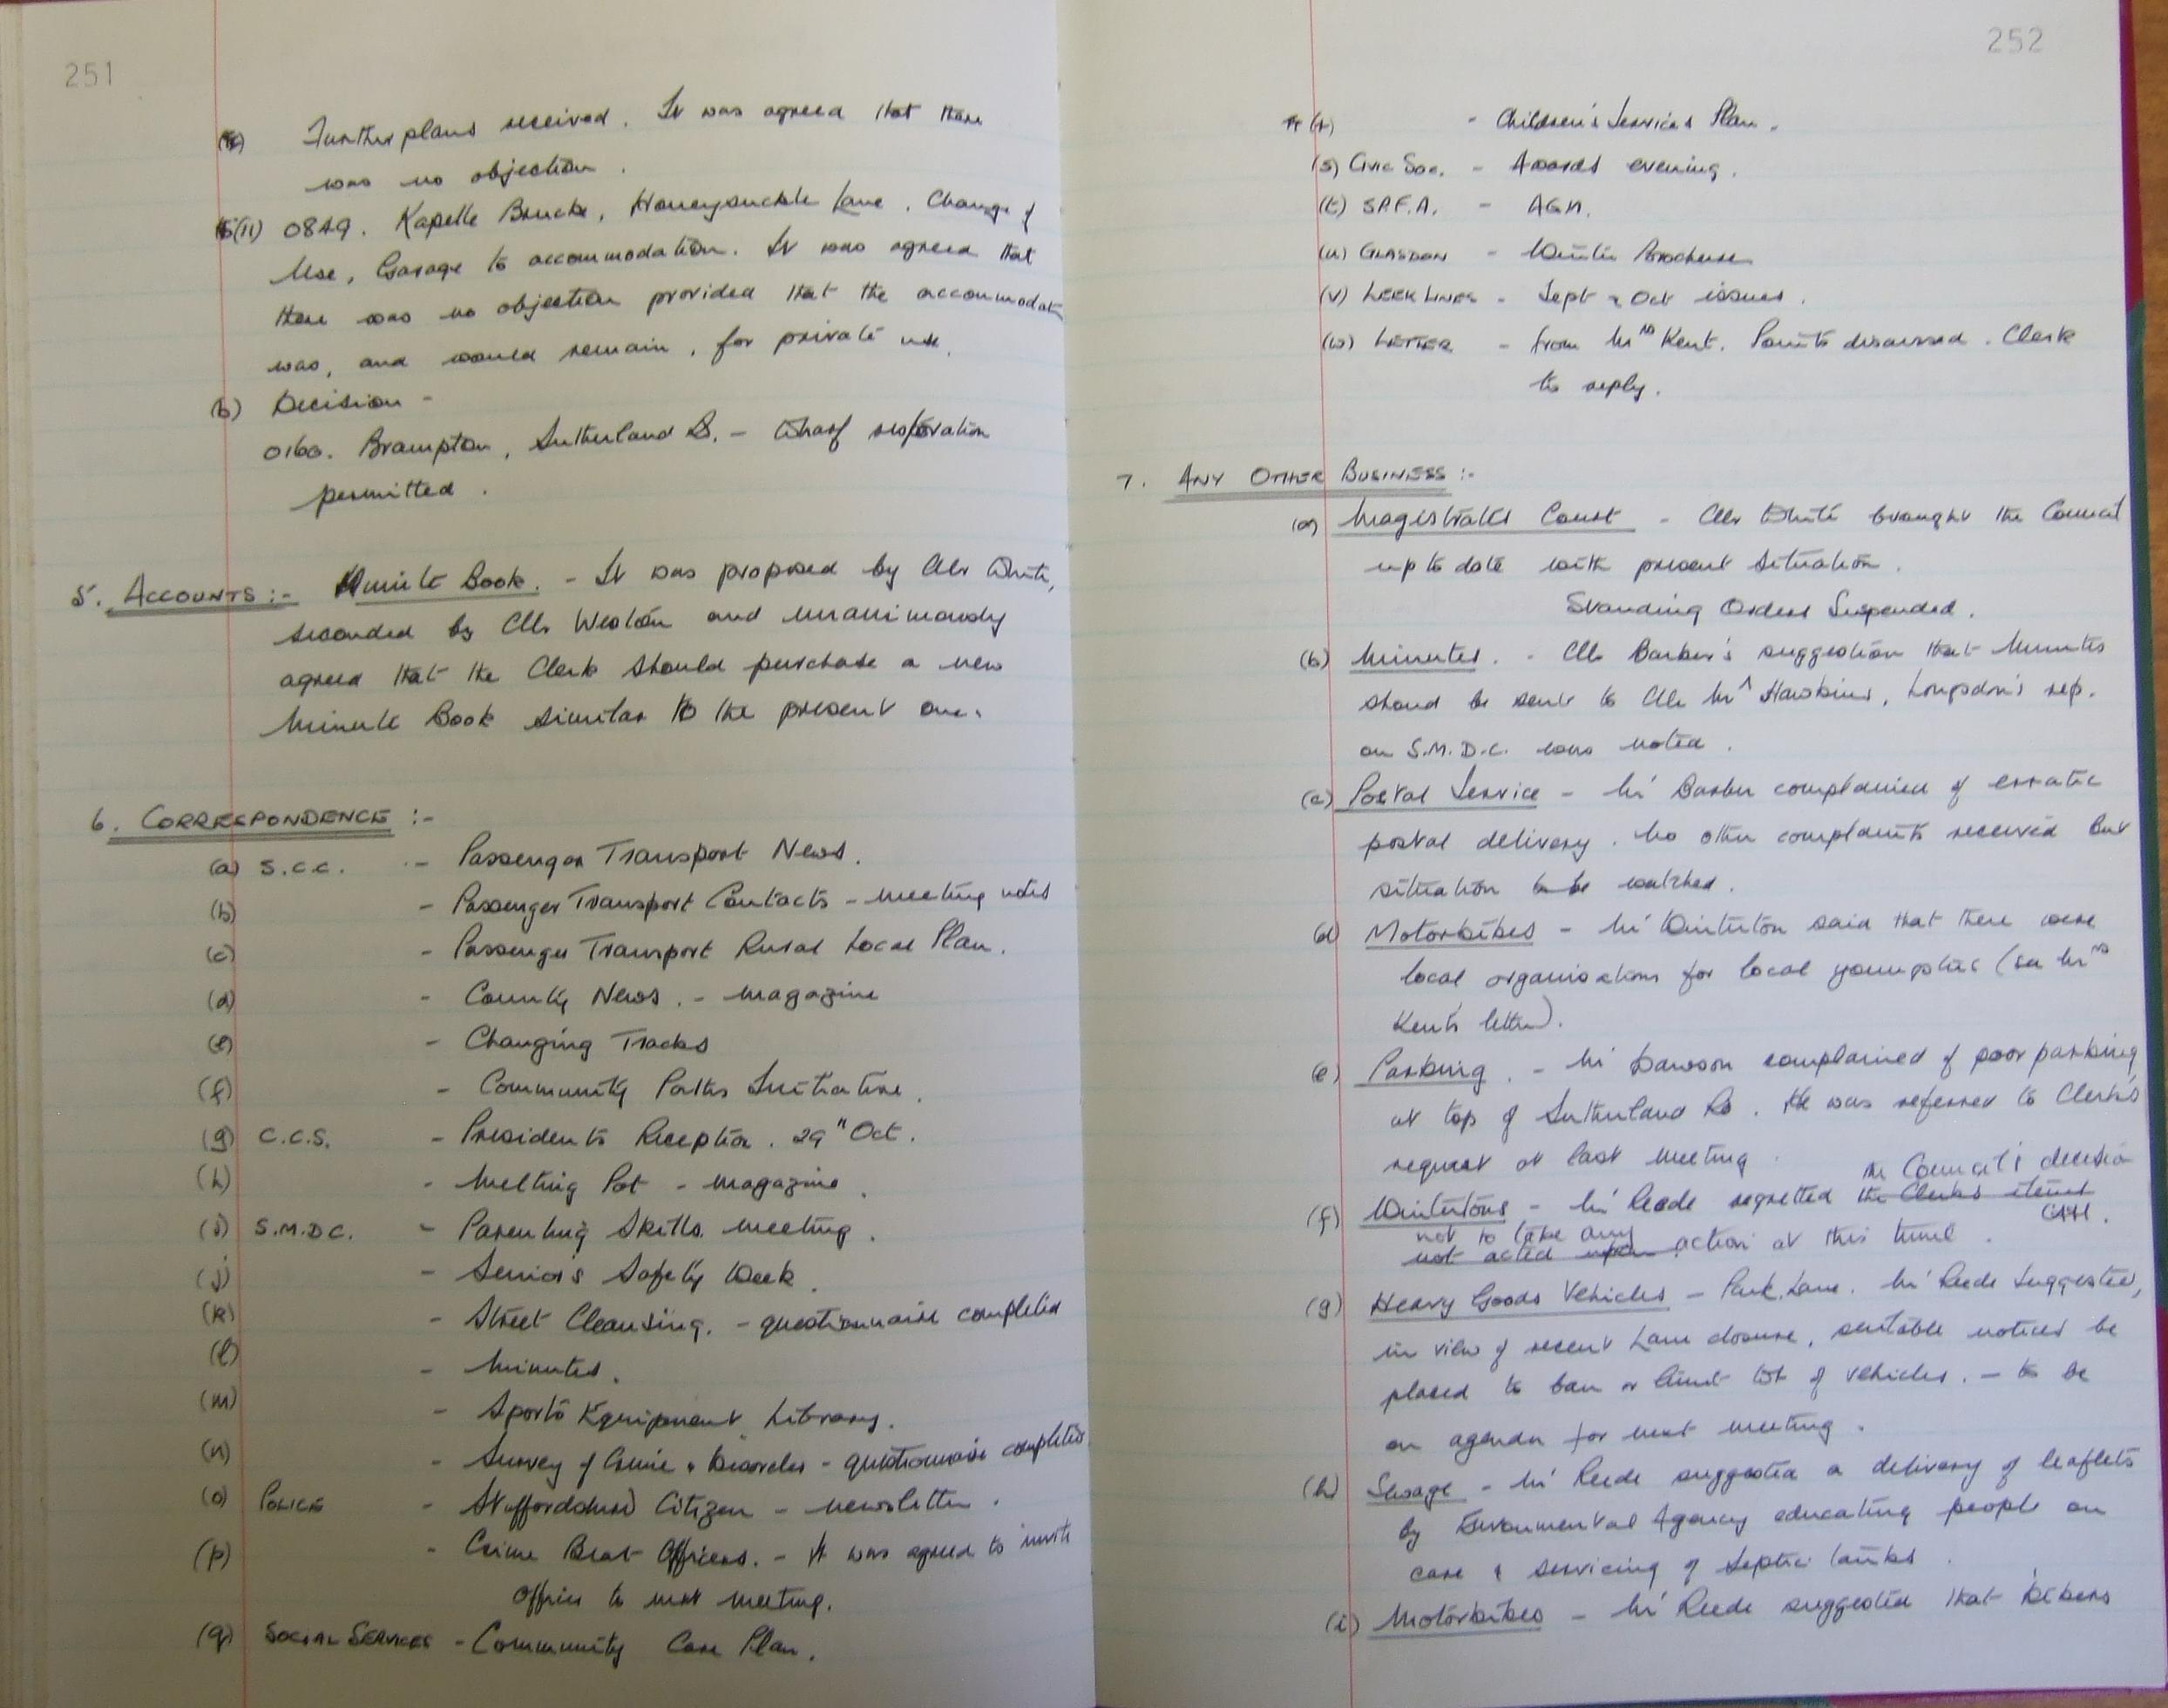 251
Further plans received. It was agreed that there
was no objection.
(ii) 0849. Kapelle Brucke, Honeysuckle Lane. Change of
Use, Garage to accommodation. It was agreed that
there was no objection provided that the accommodat
was, and would remain, for private use.
(b) Decision -
0160. Brampton, Sutherland Rd. - Wharf restoration
permitted.
5. ACCOUNTS :- Minute Book. - It was proposed by Cllr White,
seconded by Cllr Weston and unanimously
agreed that the Clerk should purchase a new
Minute Book similar to the present one.
6. CORRESPONDENCE :-
(a) S.C.C. - Passenger Transport News.
(b) - Passenger Transport Contacts - meeting notes
(c) - Passenger Transport Rural Local Plan.
(d) - County News. - magazine
(e) - Changing Tracks
(f) - Community Paths Initiative.
(g) C.C.S. - Presidents Reception. 29" Oct.
(h) - Melting Pot - magazine.
(i) S.M.D.C. - Parenting Skills meeting.
(j) - Seniors Safety Week.
(k) - Street Cleansing. - questionnaire completed
(l) - Minutes.
(m) - Sports Equipment Library.
(n) - Survey of Crime & Disorder - questionnaire completed
(o) POLICE - Staffordshire Citizen - newsletter.
(p) - Crime Beat Officers. - It was agreed to invite
Officer to next meeting.
(q) SOCIAL SERVICES - Community Care Plan.
252
(r) - Children's Services Plan.
(s) Civic Soc. - Awards evening.
(t) S.P.F.A. - AGM.
(u) GLASDON - Winter Brochure
(v) LEEK LINES - Sept & Oct issues.
(w) LETTER - from Mrs Kent. Points discussed. Clerk
to reply.
7. ANY OTHER BUSINESS :-
(a) Magistrates Court - Cllr White brought the Council
up to date with present situation.
Standing Orders Suspended.
(b) Minutes. - Cllr Barber's suggestion that Minutes
shoud be sent to Cllr Mr Hawkins, Longsdon's rep.
on S.M.D.C. was noted.
(c) Postal Service - Mr Barber complained of erratic
postal delivery. No other complaints received but
situation to be watched.
(d) Motorbikes - Mr Winterton said that there were
local organisations for local youngsters (see Mrs
Kent's letter).
(e) Parking. - Mr Dawson complained of poor parking
at top of Sutherland Rd. He was referred to Clerk's
request at last meeting.
the Council's decision
(f) Wintertons - Mr Reede regretted the Clerks
not to take any
not acted upon action at this time.
(g) Heavy Goods Vehicles - Park Lane. Mr Reede suggested,
in view of recent Lane closure, suitable notices be
placed to ban or limit wt of vehicles. - to be
on agenda for next meeting.
(h) Sewage - Mr Reede suggested a delivery of leaflets
by Environmental Agency educating people on
care & servicing of Septic tanks.
(i) Motorbikes - Mr Reede suggested that bikers